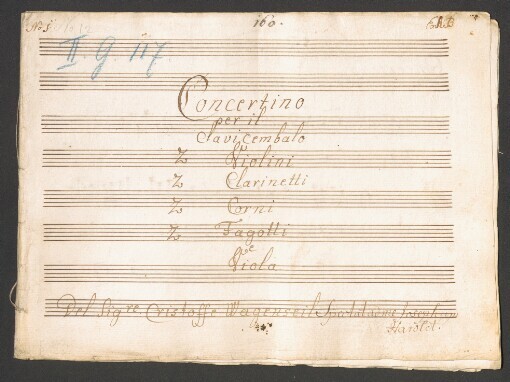 No 5
160.
II G 117
Concertino
per il
Clavicembalo
2 Violini
2 Clarinetti
2 Corni
2 Fagotti
Viola
Del Sig re Cristoffo Wagenseil
Harolet.